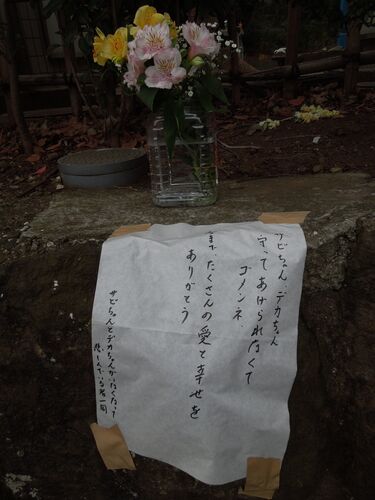 サビちゃん、デカちゃん
守ってあげられなくて
ゴメンネ、
たくさんの愛と幸せを
ありがとう
サビちゃんとデカちゃんが亡くなって
悲しんでいる者一同